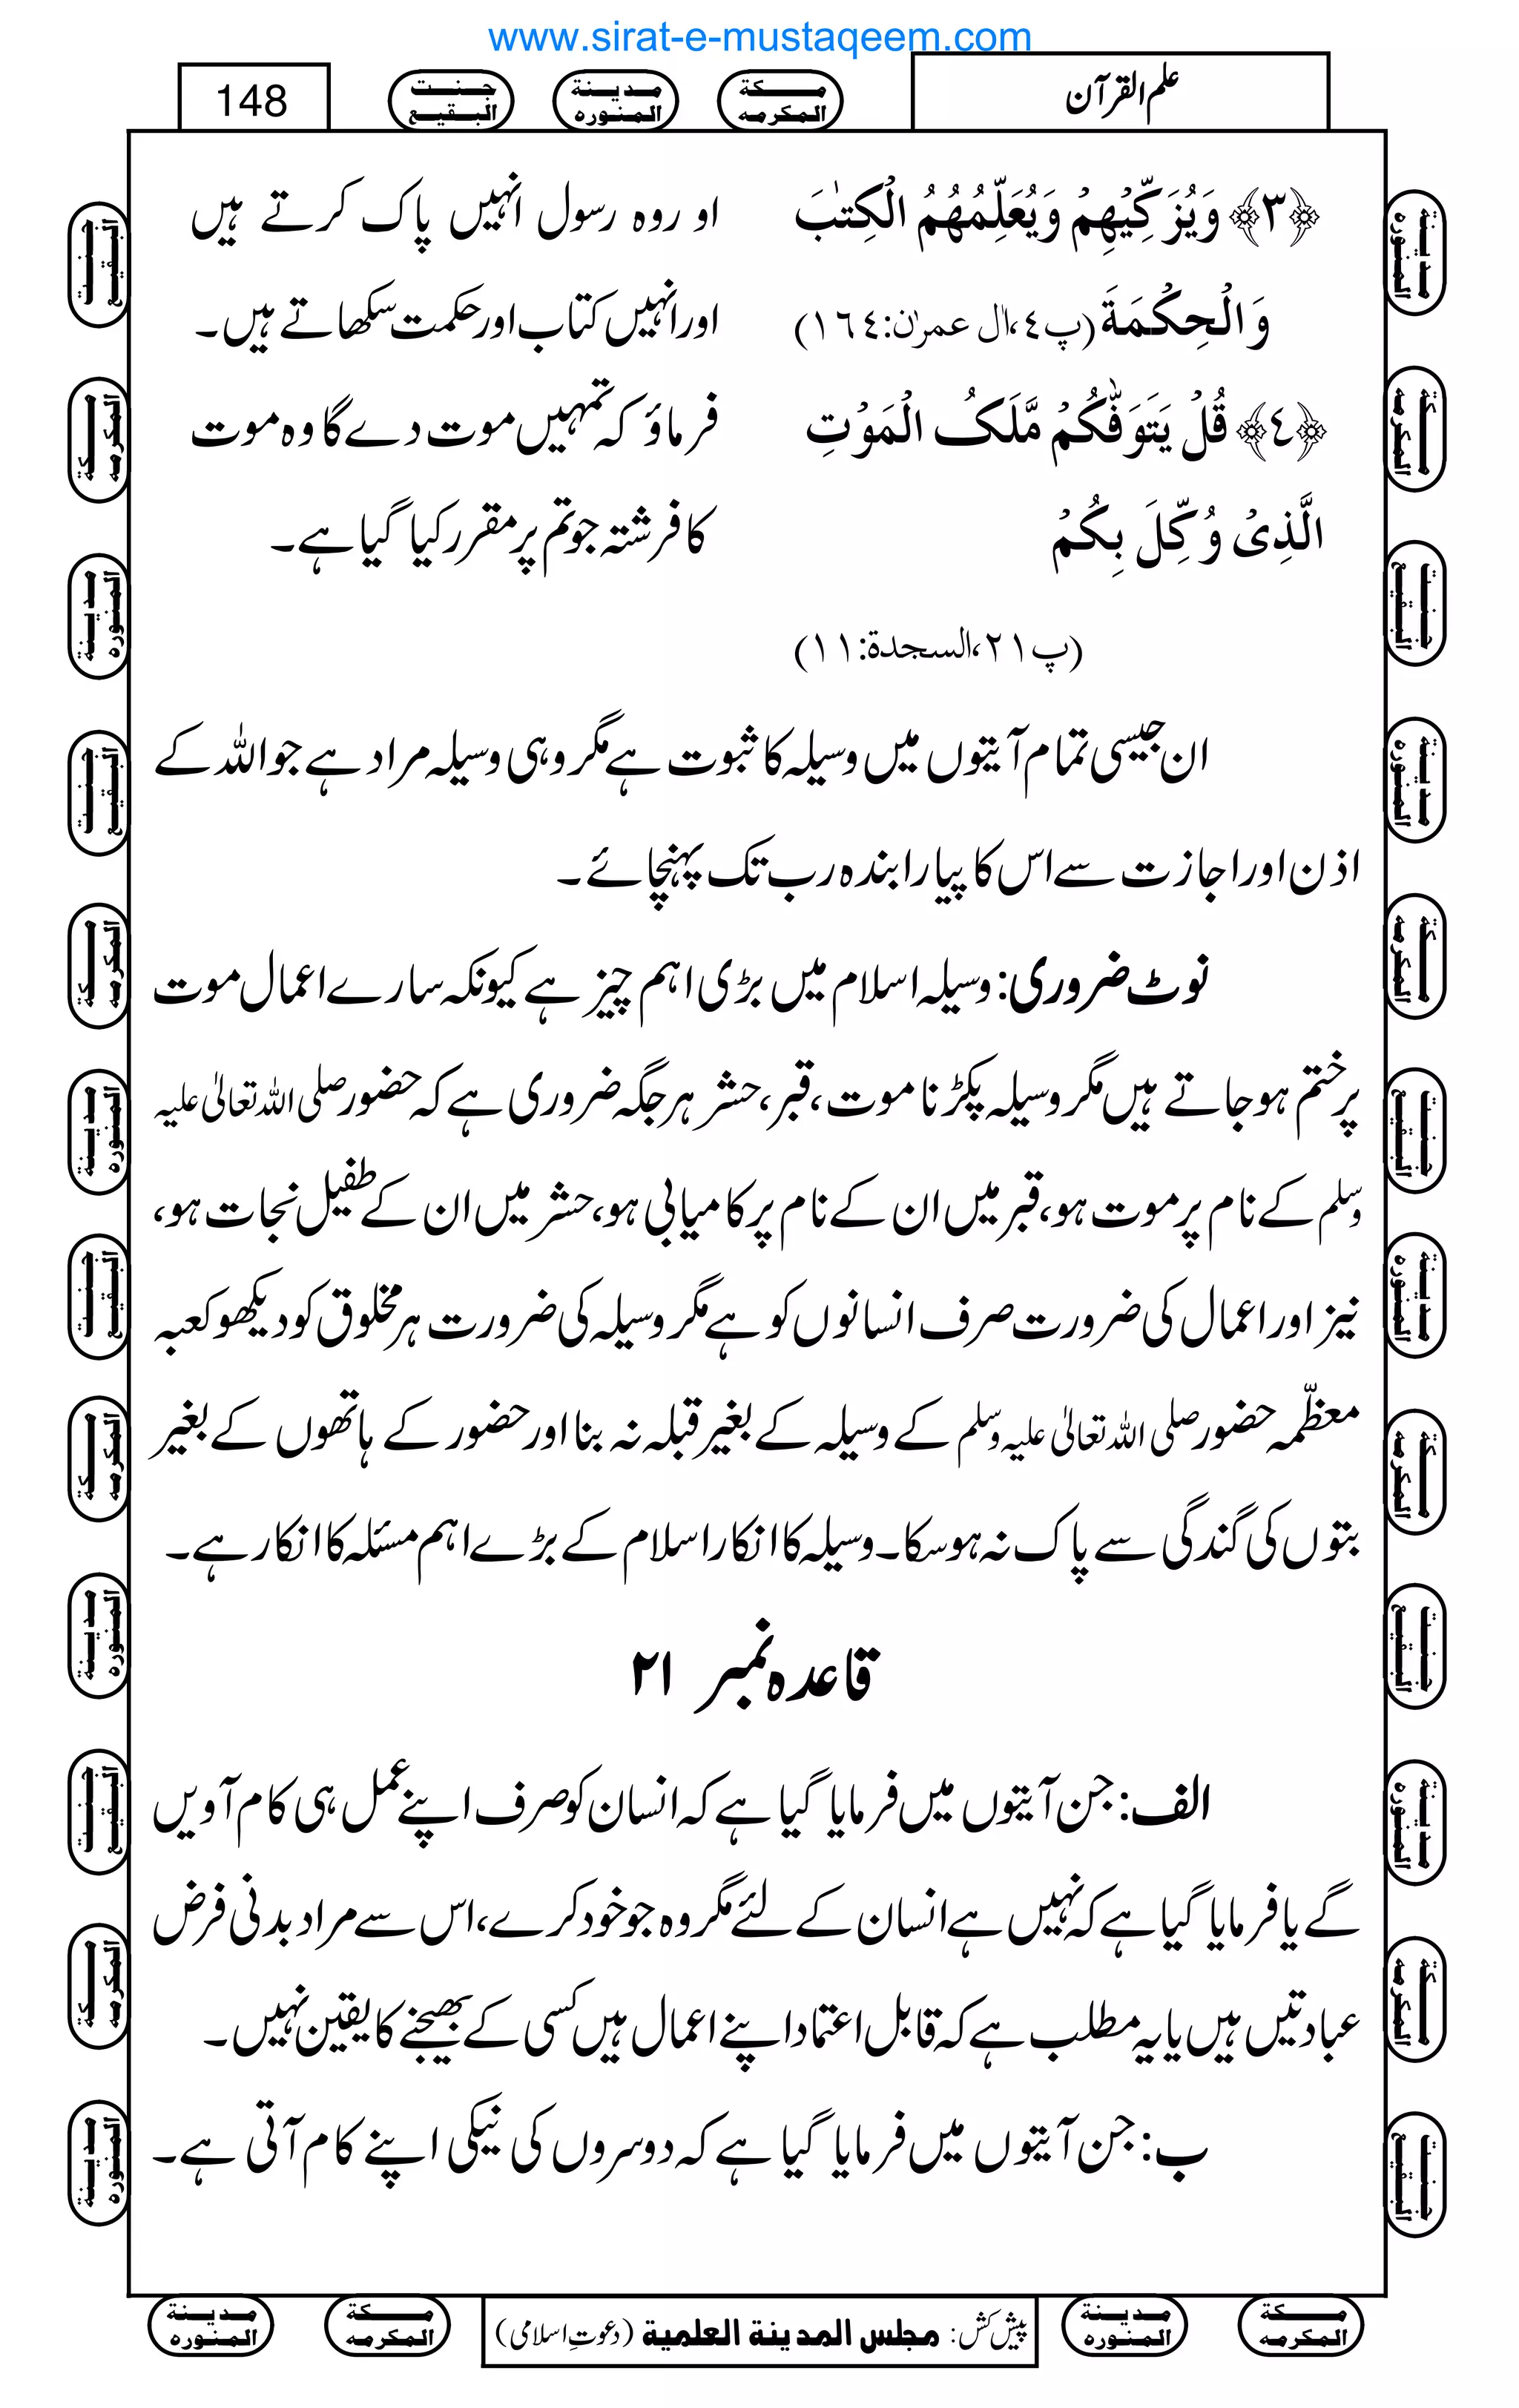 www.sirat-e-mustaqeem.com
علم القرآن
مـكة المكرمه
مـدينة المنوره
جـنـت البقيع
148
﴿٣﴾ وَيُزَكِّيْهِمْ وَيُعَلِّمُهُمُ الْكِتٰبَ
وَالْحِكْمَةَ (پ٤،ال عمرٰن:١٦٤)
او رور رسول انہیں پاک کرتے ہیں
اور انہیں کتاب اور حکمت سکھاتے ہیں۔
﴿٤﴾ قُلْ يَتَوَفّٰكُمْ مَّلَكُ الْمَوْتِ
الَّذِىْ وُكِّلَ بِكُمْ
(پ٢١،السجدة:١١)
فرماؤ کہ تمہیں موت دے گا وہ موت
کا فرشتہ جو تم پر مقرر کیا گیا ہے۔
ان جیسی تمام آیتوں میں وسیلہ کا ثبوت ہے مگر وہی وسیلہ مراد ہے جو اللہ کے
اذن اور اجازت سے اس کا پیارا بندہ رب تک پہنچائے۔
نوٹ ضروری: وسیلہ اسلام میں بڑی اہم چیز ہے کیونکہ سارے اعمال موت
پر ختم ہو جاتے ہیں مگر وسیلہ پکڑنا موت، قبر، حشر ہر جگہ ضروری ہے کہ حضور صلی اللہ تعالیٰ علیہ
وسلم کے نام پر موت ہو، قبر میں ان کے نام پر کامیابی ہو، حشر میں ان کے طفیل نجات ہو،
نیز اور اعمال کی ضرورت صرف انسانوں کو ہے مگر وسیلہ کی ضرورت ہر مخلوق کو دیکھو کعبہ
معظّمہ حضور صلی اللہ تعالیٰ علیہ وسلم کے وسیلہ کے بغیر قبلہ نہ بنا اور حضور کے ہاتھوں کے بغیر
بتوں کی گندگی سے پاک نہ ہو سکا۔ وسیلہ کا انکار اسلام کے بڑے اہم مسئلہ کا انکار ہے۔
قاعدہ نمبر ۲۱
الف: جن آیتوں میں فرمایا گیا ہے کہ انسان کو صرف اپنے عمل ہی کام آویں
گے یا فرمایا گیا ہے کہ نہیں ہے انسان کے لئے مگر وہ جو خود کرے، اس سے مراد بدنی فرض
عبادتیں ہیں یا یہ مطلب ہے کہ قابل اعتماد اپنے اعمال ہیں کسی کے بھیجنے کا یقین نہیں۔
ب: جن آیتوں میں فرمایا گیا ہے کہ دوسروں کی نیکی اپنے کام آتی ہے۔
پیش کش: مجلس المدينة العلمية (دعوتِ اسلامی)